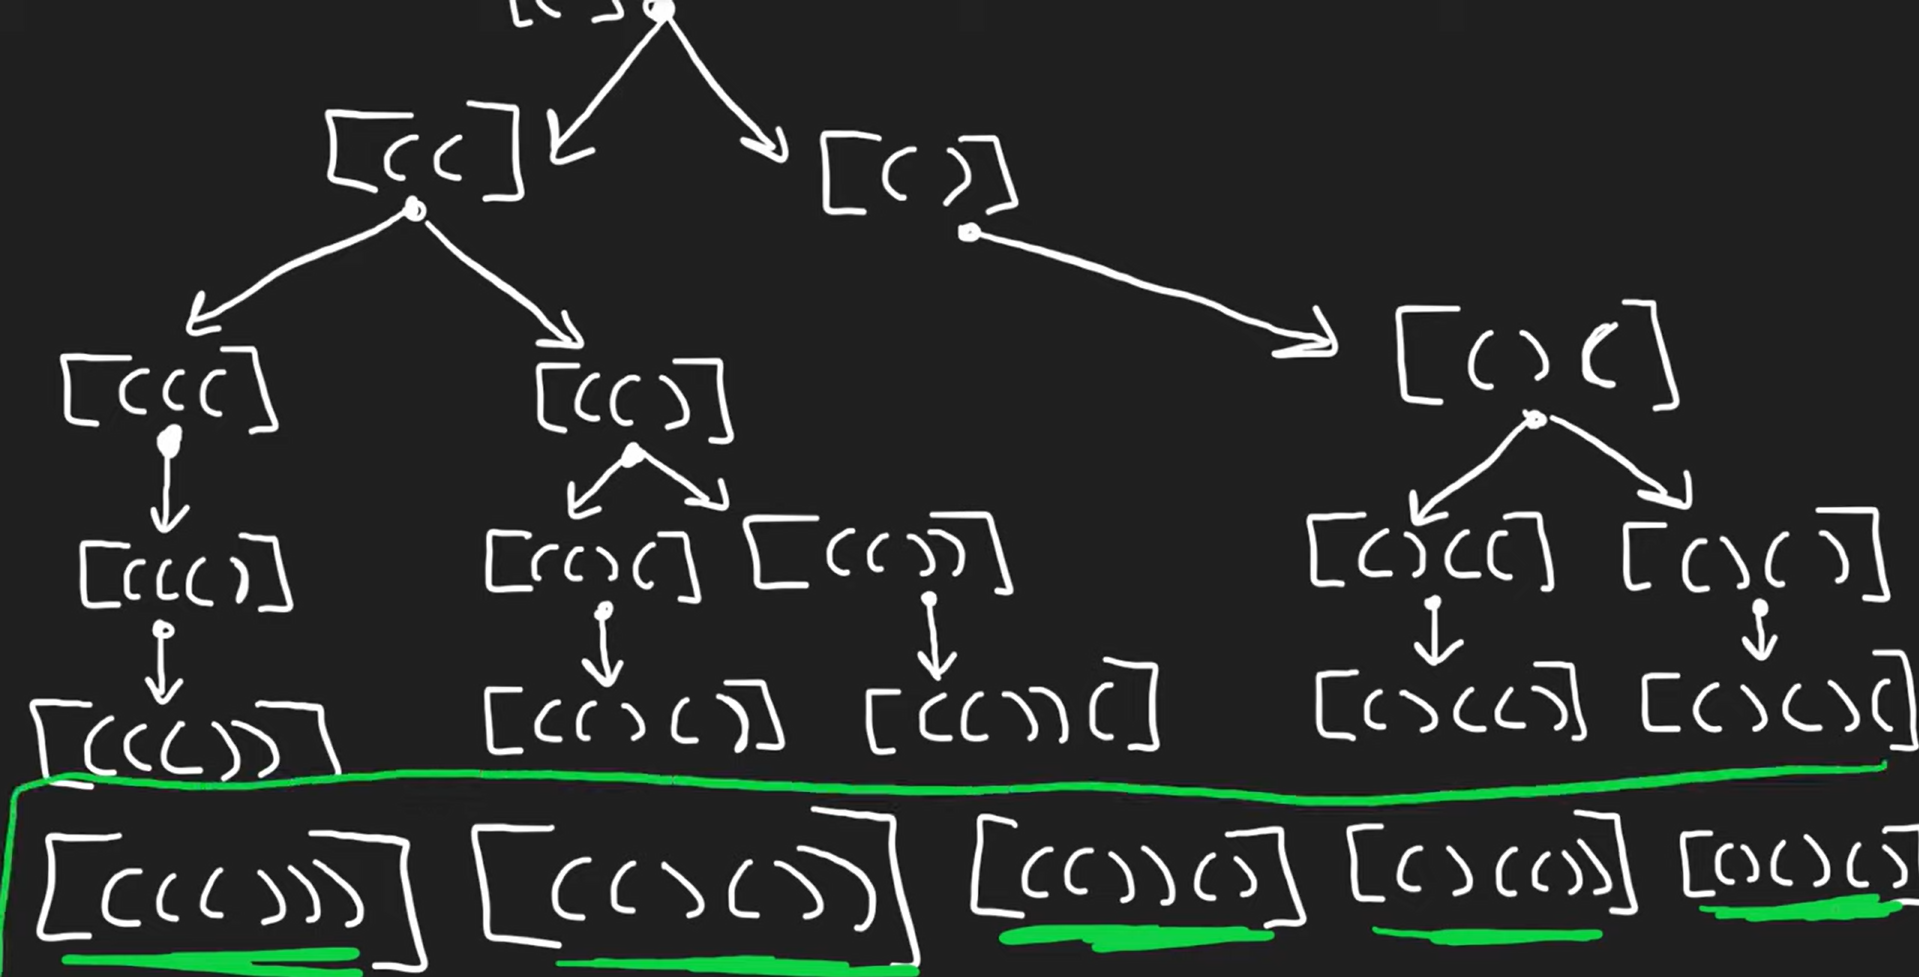 [(]
[((]
[()]
[(((]
[(()]
[()(]
[((()]
[(()(]
[(())]
[()((]
[()()]
[((())]
[(()()]
[(())(]
[()(()]
[()()(]
[((()))]
[(()())]
[(())()]
[()(())]
[()()()]